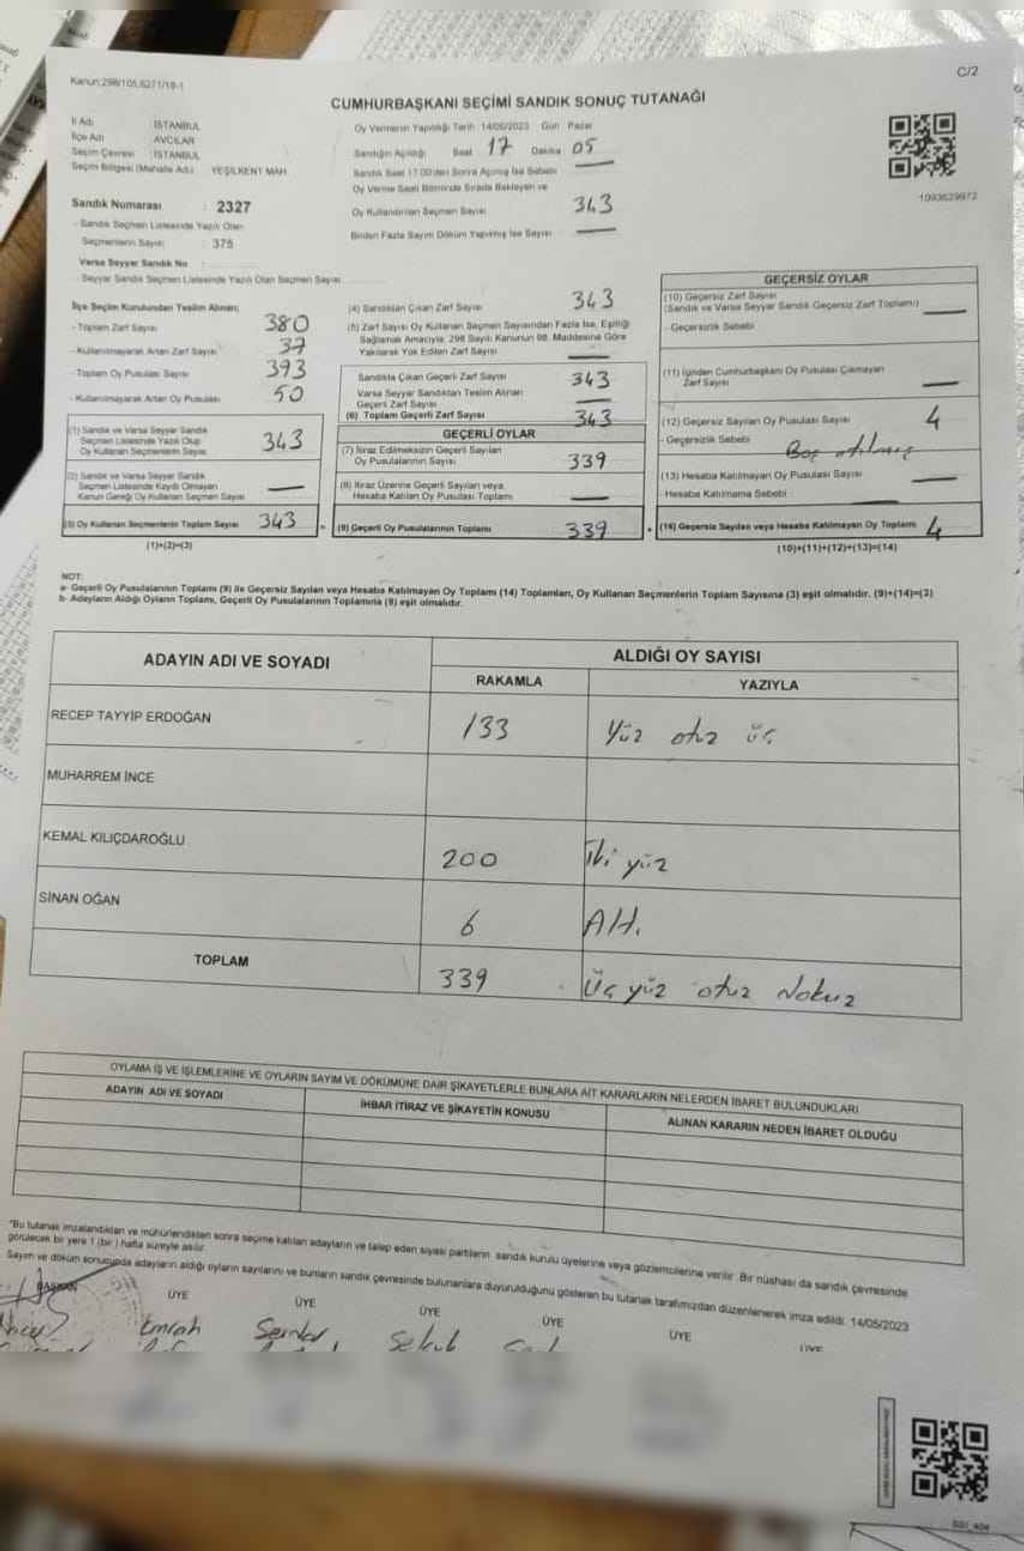 Kanun:298/105,6271/18-1
C/2
CUMHURBAŞKANI SEÇİMİ SANDIK SONUÇ TUTANAĞI
İl Adı : İSTANBUL
İlçe Adı : AVCILAR
Seçim Çevresi : İSTANBUL
Seçim Bölgesi (Mahalle Adı) : YEŞİLKENT MAH.
Sandık Numarası : 2327
- Sandık Seçmen Listesinde Yazılı Olan
Seçmenlerin Sayısı : 375
Varsa Seyyar Sandık No :
- Seyyar Sandık Seçmen Listesinde Yazılı Olan Seçmen Sayısı
Oy Vermenin Yapıldığı Tarih 14/05/2023 Gün Pazar
Sandığın Açıldığı Saat 17 Dakika 05
Sandık Saat 17.00'den Sonra Açılmış İse Sebebi
Oy Verme Saati Bitiminde Sırada Bekleyen ve
Oy Kullandırılan Seçmen Sayısı 343
Birden Fazla Sayım Döküm Yapılmış İse Sayısı —
1093629972
İlçe Seçim Kurulundan Teslim Alınan;
- Toplam Zarf Sayısı 380
- Kullanılmayarak Artan Zarf Sayısı 37
- Toplam Oy Pusulası Sayısı 393
- Kullanılmayarak Artan Oy Pusulası 50
(1) Sandık ve Varsa Seyyar Sandık
Seçmen Listesinde Yazılı Olup
Oy Kullanan Seçmenlerin Sayısı 343
(2) Sandık ve Varsa Seyyar Sandık
Seçmen Listesinde Kayıtlı Olmayan
Kanun Gereği Oy Kullanan Seçmen Sayısı —
(3) Oy Kullanan Seçmenlerin Toplam Sayısı 343
(1)+(2)=(3)
(4) Sandıktan Çıkan Zarf Sayısı 343
(5) Zarf Sayısı Oy Kullanan Seçmen Sayısından Fazla İse, Eşitliği
Sağlamak Amacıyla, 298 Sayılı Kanunun 98. Maddesine Göre
Yakılarak Yok Edilen Zarf Sayısı —
Sandıkta Çıkan Geçerli Zarf Sayısı 343
Varsa Seyyar Sandıktan Teslim Alınan
Geçerli Zarf Sayısı —
(6) Toplam Geçerli Zarf Sayısı 343
GEÇERLİ OYLAR
(7) İtiraz Edilmeksizin Geçerli Sayılan
Oy Pusulalarının Sayısı 339
(8) İtiraz Üzerine Geçerli Sayılan veya
Hesaba Katılan Oy Pusulası Toplamı —
(9) Geçerli Oy Pusulalarının Toplamı 339
GEÇERSİZ OYLAR
(10) Geçersiz Zarf Sayısı
(Sandık ve Varsa Seyyar Sandık Geçersiz Zarf Toplamı) —
- Geçersizlik Sebebi
(11) İçinden Cumhurbaşkanı Oy Pusulası Çıkmayan
Zarf Sayısı —
(12) Geçersiz Sayılan Oy Pusulası Sayısı 4
- Geçersizlik Sebebi Boş atılmış
(13) Hesaba Katılmayan Oy Pusulası Sayısı —
Hesaba Katılmama Sebebi —
(14) Geçersiz Sayılan veya Hesaba Katılmayan Oy Toplamı 4
(10)+(11)+(12)+(13)=(14)
NOT:
a- Geçerli Oy Pusulalarının Toplamı (9) ile Geçersiz Sayılan veya Hesaba Katılmayan Oy Toplamı (14) Toplamları, Oy Kullanan Seçmenlerin Toplam Sayısına (3) eşit olmalıdır. (9)+(14)=(3)
b- Adayların Aldığı Oyların Toplamı, Geçerli Oy Pusulalarının Toplamına (9) eşit olmalıdır.
ADAYIN ADI VE SOYADI ALDIĞI OY SAYISI
RAKAMLA YAZIYLA
RECEP TAYYİP ERDOĞAN 133 Yüz otuz üç
MUHARREM İNCE
KEMAL KILIÇDAROĞLU 200 İki yüz
SİNAN OĞAN 6 Altı
TOPLAM 339 Üç yüz otuz dokuz
OYLAMA İŞ VE İŞLEMLERİNE VE OYLARIN SAYIM VE DÖKÜMÜNE DAİR ŞİKAYETLERLE BUNLARA AİT KARARLARIN NELERDEN İBARET BULUNDUKLARI
ADAYIN ADI VE SOYADI İHBAR İTİRAZ VE ŞİKAYETİN KONUSU ALINAN KARARIN NEDEN İBARET OLDUĞU
"Bu tutanak imzalandıktan ve mühürlendikten sonra seçime katılan adayların ve talep eden siyasi partilerin sandık kurulu üyelerine veya gözlemcilerine verilir. Bir nüshası da sandık çevresinde
görülecek bir yere 1 (bir) hafta süreyle asılır.
Sayım ve döküm sonucunda adayların aldığı oyların sayılarını ve bunların sandık çevresinde bulunanlara duyurulduğunu gösteren bu tutanak tarafımızdan düzenlenerek imza edildi. 14/05/2023
BAŞKAN ÜYE ÜYE ÜYE ÜYE ÜYE ÜYE
Emrah